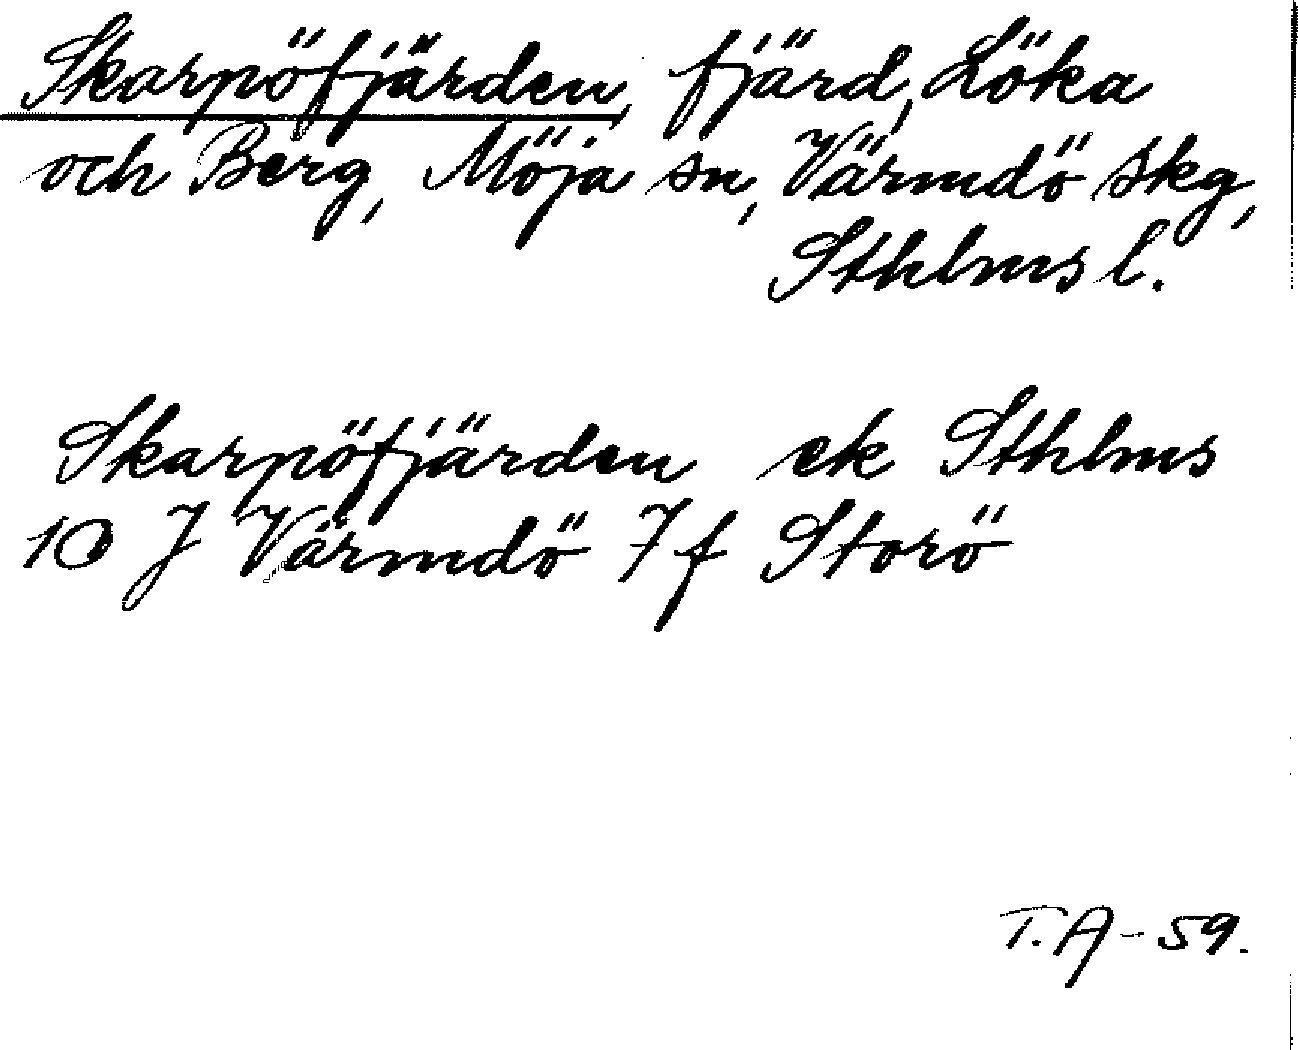 Skarpöfjärden, fjärd, Löka
och Berg, Möja sn, Värmdö skg,
Sthlms l.
Skarpöfjärden ek Sthlms
10 J Värmdö 7 f Storö
T. A - 59.